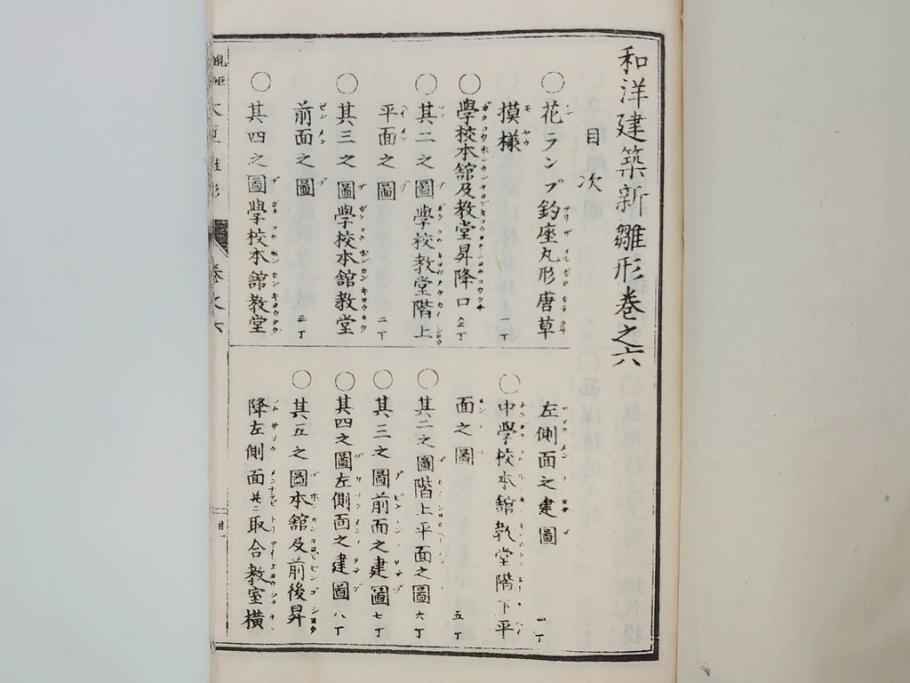 和洋建築新雛形卷之六
目次
〇花ランプ釣座丸形唐草
摸様 一丁
〇學校本舘及教堂昇降口 仝丁
〇其二之圖學校教堂階上
平面之圖 二丁
〇其三之圖學校本舘教堂
前面之圖 三丁
〇其四之圖學校本舘教堂
左側面之建圖 四丁
〇中學校本舘教堂階下平
面之圖 五丁
〇其二之圖階上平面之圖 六丁
〇其三之圖前面之建圖 七丁
〇其四之圖左側面之建圖 八丁
〇其五之圖本舘及前後昇
降左側面其二取合教室横
卷之六
目一